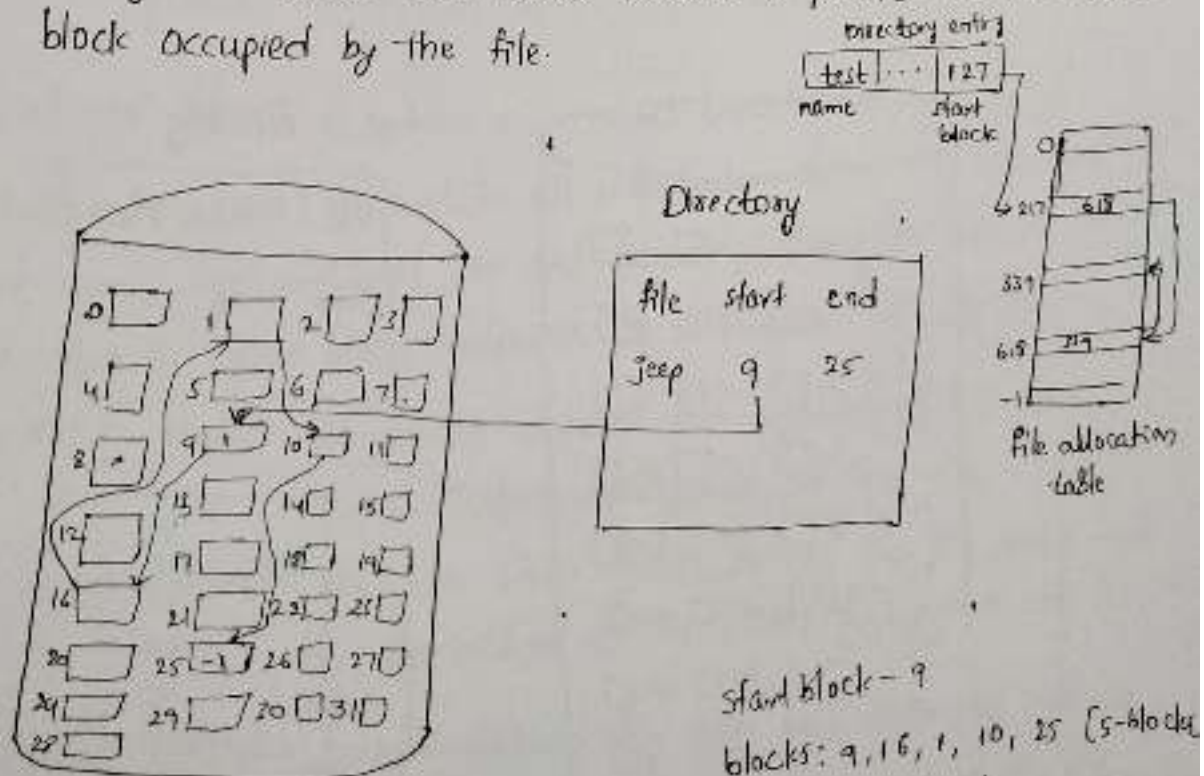 block occupied by the file.
Directory entry
test ... 127
name start
block
0
217 618
339
618 339
-1
file allocation
table
Directory
file start end
jeep 9 25
0 1 2 3
4 5 6 7
8 9 1 10 11
12 13 14 15
16 17 18 19
21 22 23
20 25 -1 26 27
24 29 30 31
28
start block - 9
blocks: 9, 16, 1, 10, 25 (5-block